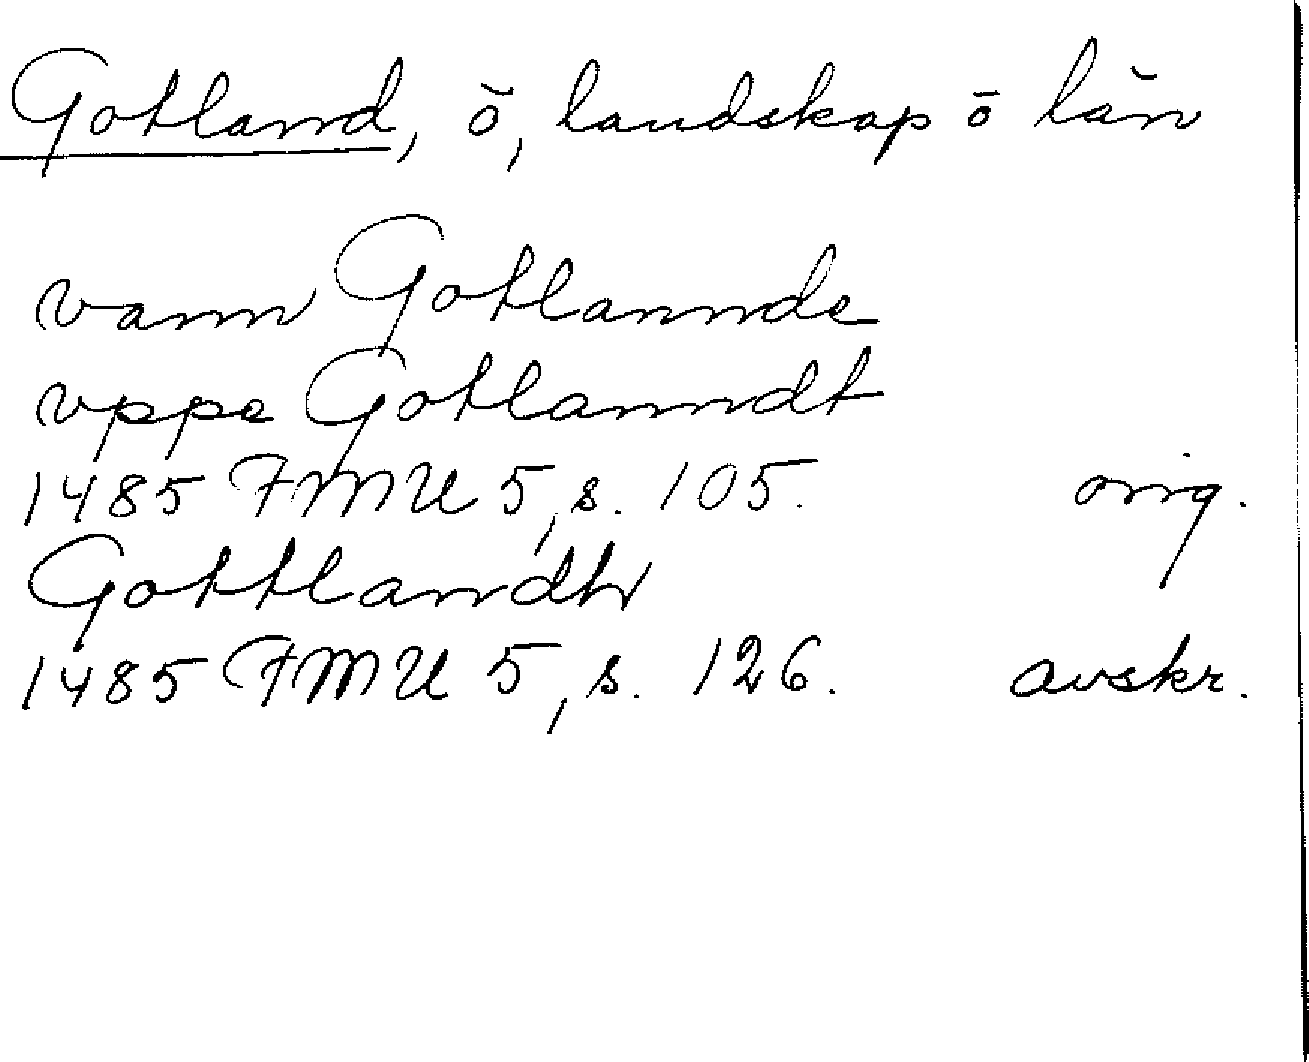 Gotland, ö, landskap o län
vann Gotlannde
vppe Gotlanndt
1485 FMU 5, s. 105. orig.
Gottlandh
1485 FMU 5, s. 126. avskr.